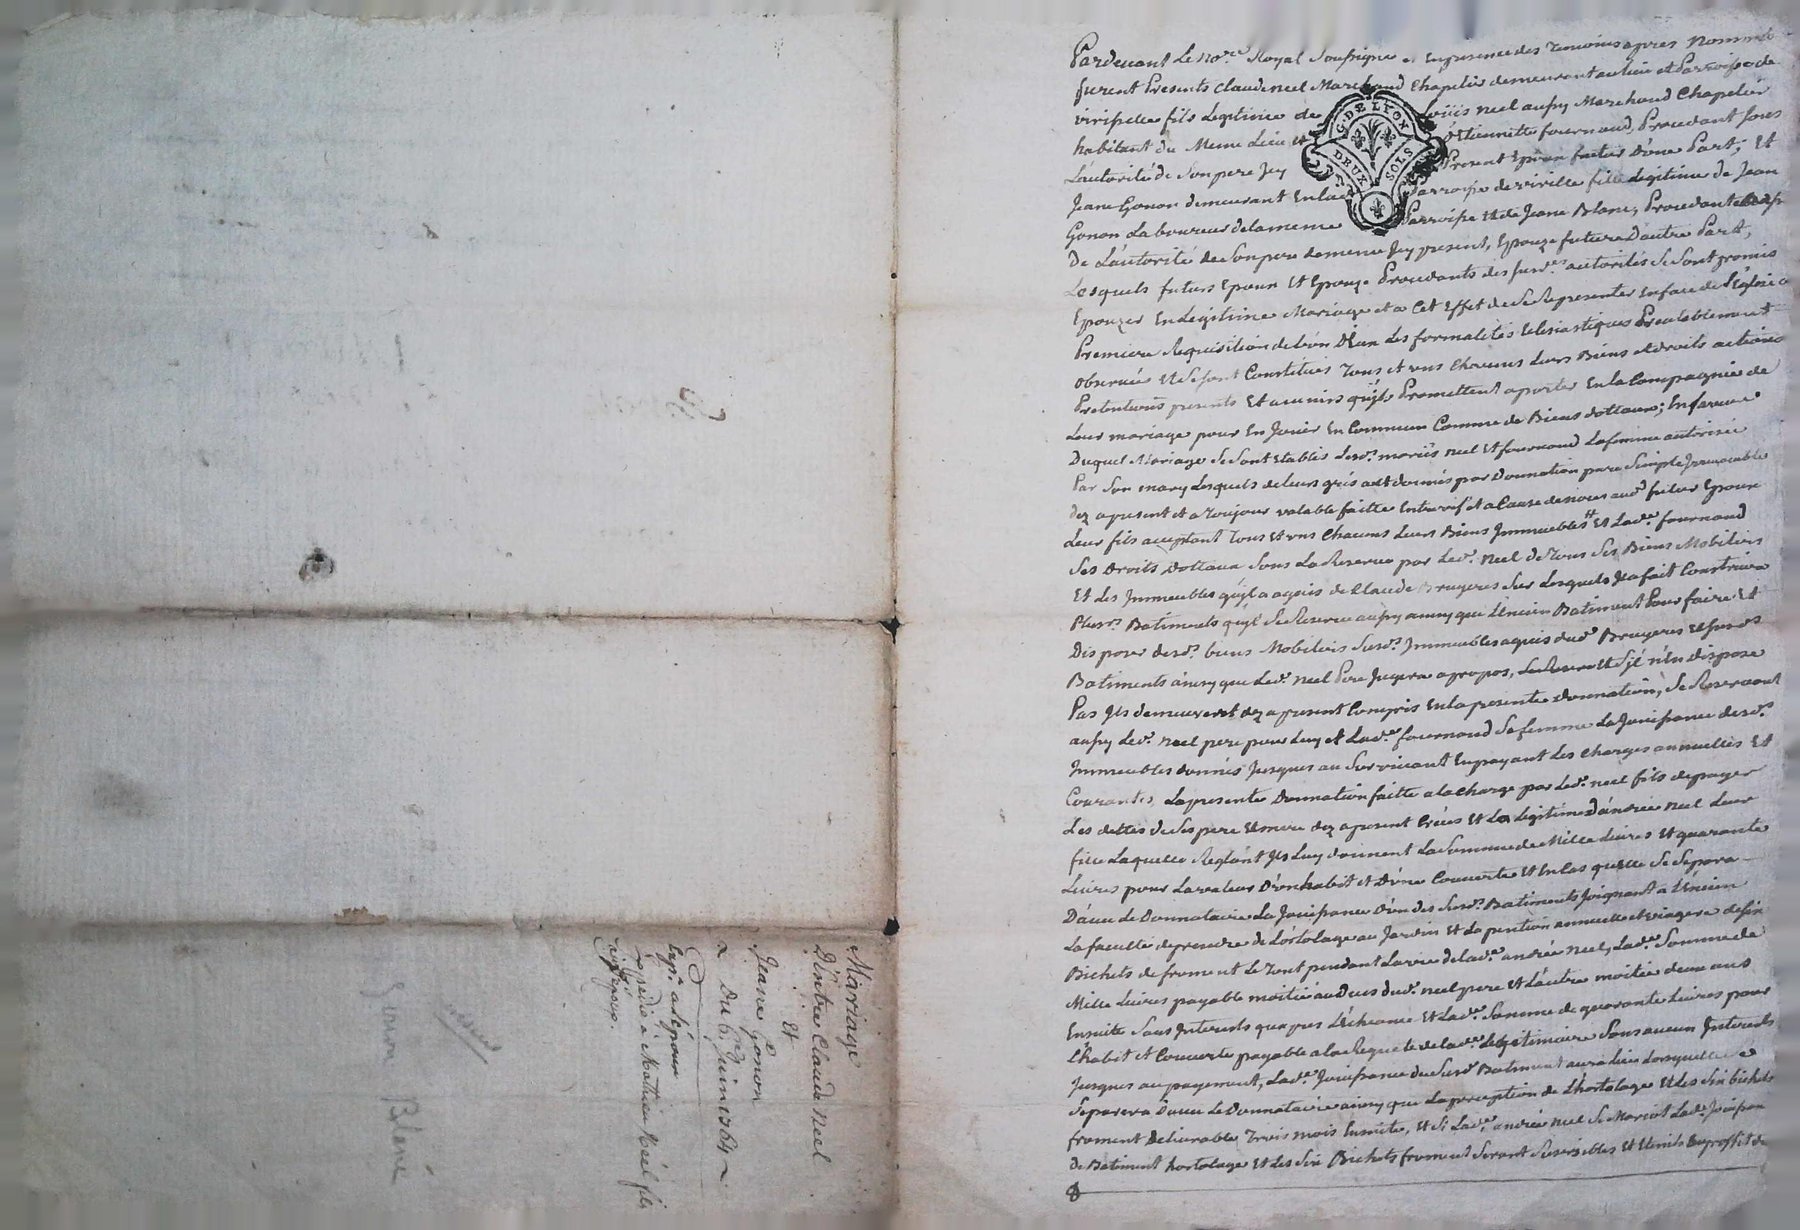 Pardevant Le No.re Royal Soussigné et En presence des Temoins apres Nommés
furent Presents Claude neel Marchand Chapelier demeurant au lieu et Parroisse de
viriville fils Legitime de Loüis neel aussy Marchand Chapelier
habitant du Meme Lieu et D'Etiennette fournaud, Procedant sous
Lautorité de Son pere Jcy Present Epoux futur D'une Part; Et
Jeane Gonon demeurant En Parroisse de viriville fille Legitime de Jean
Gonon Laboureur de la meme Parroisse Et de Jeane Blanc, Procedante
De L'autorité de Son pere de meme Jcy present, Epouze future D'autre Part;
Lesquels futurs Epoux Et Epouze Procedants des susd.es autorités se sont promis
Epouzer En Legitime Mariage et a Cet Effet de se Representer En face de l'Eglise a
Premiere Requisition de L'un D'Eux Les formalités Eclesiastiques Prealablement
observées Et se sont Constitués Tous et uns Chacuns Leurs Biens et droits actions
Pretentions presents Et avenirs qu'jls Promettent aporter En la Compagnie de
Leur mariage pour En Jouir En Commun Comme de Biens dottaux; En faveur
Duquel Mariage se sont Etablis Lesd.s mariés neel Et fournaud La femme autorisée
Par Son mary Lesquels de leurs grés ont donnés par Donnation pure Simple Jrrevocable
dez apresent et a Toujour valable faitte Entre vifs et a Cause de noces aud.t futur Epoux
Leur fils acceptant Tous Et uns Chacuns Leurs Biens Jmmeubles Et Lad.e fournaud
Ses Droits Dottaux Sous La Reserve par Led.t neel de Tous Ses Biens Mobiliers
Et Les Jmmeubles qu'jl a aquis de Claude Bruyeres Sur Lesquels Jl a fait Construire
Plus.rs Batiments qu'jl Se Reserve aussy ainsy que L'encien Batiment Pour faire Et
Disposer desd.s biens Mobiliers Susd.s Jmmeubles aquis dud.t Bruyeres Et susd.s
Batiments ainsy que Led.t neel Pere Jugera apropos, Et S'jl n'En dispose
Pas Jls demeureront dez apresent Compris En la presente Donnation, Se Reservant
aussy Led.t neel pere pour Luy et Lad.e fournaud Sa femme La Jouissance desd.s
Jmmeubles donnés Jusques au Survivant En payant Les Charges annuelles Et
Courantes, La presente Donnation faitte a la charge par Led.t neel fils de payer
Les dettes de Ses pere Et mere dez apresent Créés Et La Legitime D'andrée neel Leur
fille Laquelle Reglant Jls Luy donnent La Somme de Mille Livres Et quarante
Livres pour La valeur D'un habit et D'une Couverte Et En Cas qu'elle Se Separa
D'avec Le Donnataire La Jouissance D'un des Susd.s Batiments Joignant a L'Encien
La faculté de prendre de L'ortolage au Jardin Et La pention annuelle et viagere de six
Bichets de froment Le Tout pendant La vie de Lad.e andrée neel, Lad.e Somme de
Mille Livres payable moitié au Deces dud.t neel pere Et L'autre moitié deux ans
Ensuite Sans Jnterests que pres L'Echeance Et Lad.e Somme de quarante Livres pour
L'habit et Couverte payable a la Requete de Lad.e Legitimaire Sans aucun Jnterests
Jusques au payement, Lad.e Jouissance du Susd.t Batiment aura Lieu Lorsquelle Se
Separera D'avec Le Donnataire ainsy que La perception de L'hortolage Et Les Six bichets
froment Delivrable Trois mois Ensuite, Et Si Lad.e andrée neel Se Mariot Lad.e Jouissan
De Batiment hortolage Et Les Six Bichets froment Seront Et Eteints au proffit du
G. D. E LYON
DEUX SOLS
Mariage
D'Entre Claude neel
Et
Jeane Gonon
Du 6.e Juin 1764
Exp.é a L'époux
Expedié a Mathieu Néél fils
Gonon Blanc